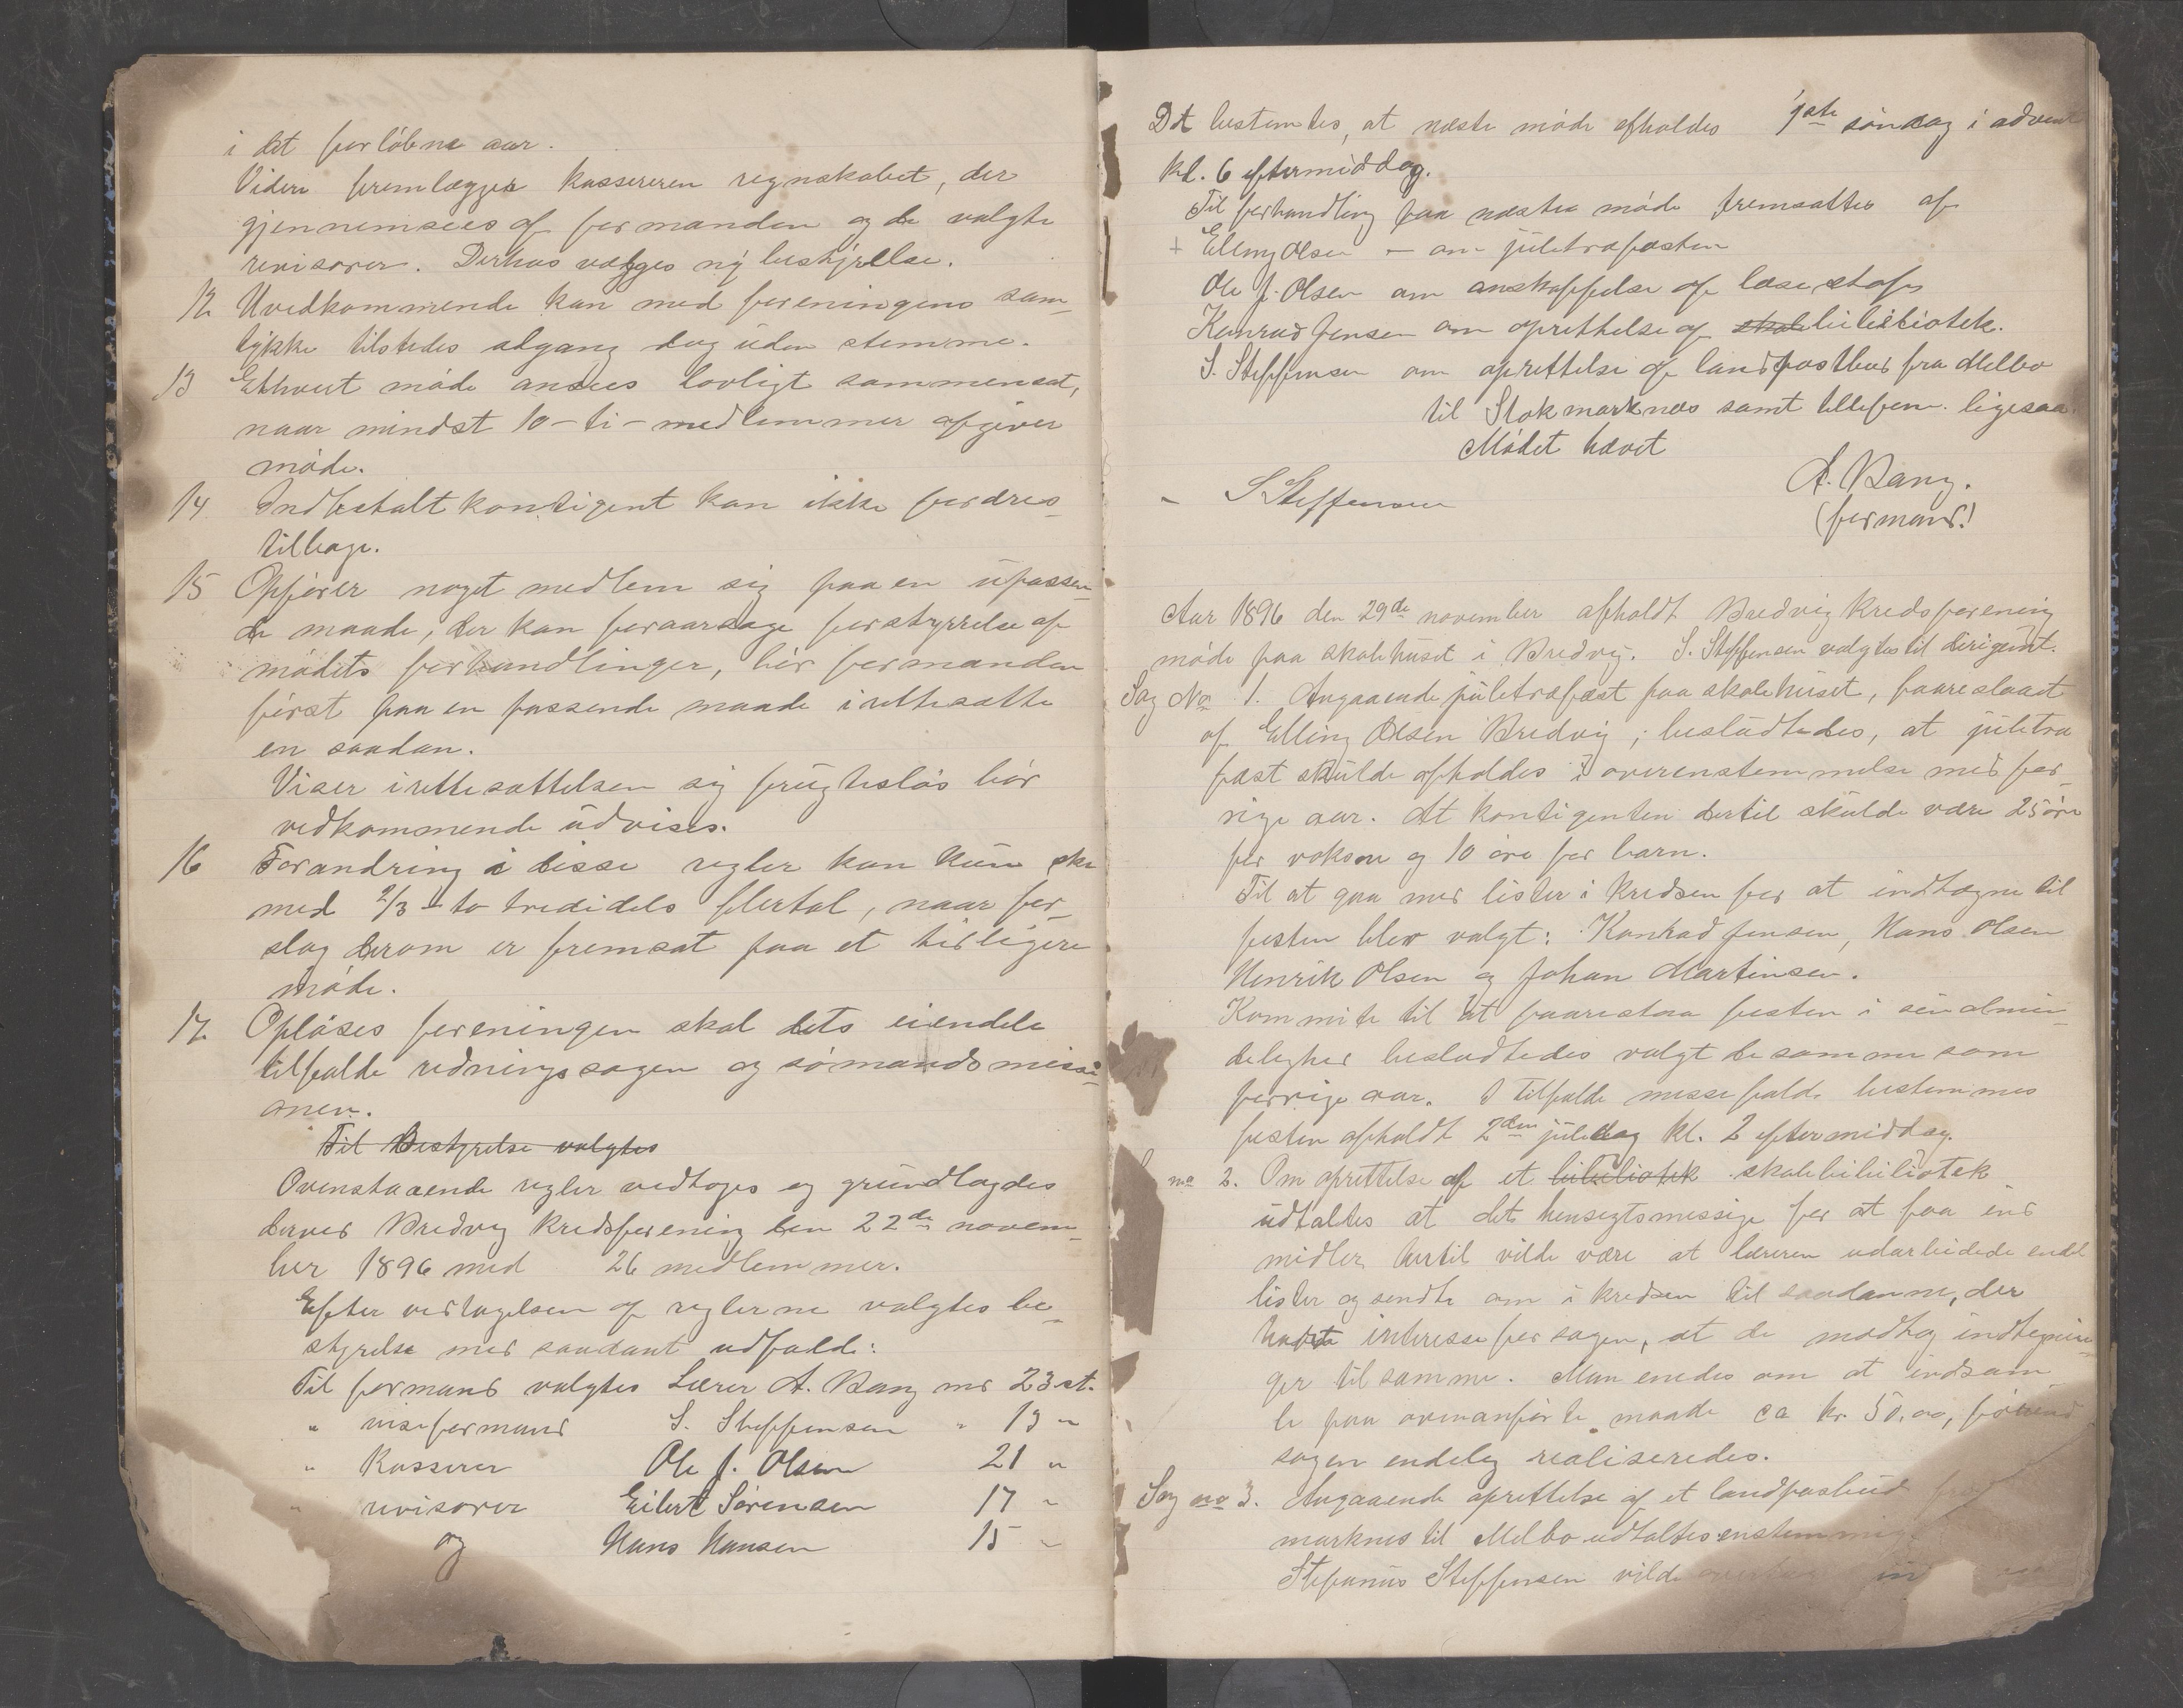 i det forløbne aar.
Videre fremlægges kassereren regnskabet, der
gjennemsees af formanden og de valgte
revisorer. Derhos vælges ny bestyrelse.
12 Uvedkommende kan med foreningens sam-
tykke tilstedes adgang dog uden stemme.
13 Ethvert møde ansees lovligt sammensat,
naar mindst 10 - ti - medlemmer afgiver
møde.
14 Indbetalt kontigent kan ikke fordres
tilbage.
15 Opfører noget medlem sig paa en upassen-
de maade, der kan foraarsage forstyrrelse af
mødets forhandlinger, bør formanden
først paa en passende maade irettesætte
en saadan.
Viser irettesættelsen sig frugtesløs bør
vedkommende udvises.
16 Forandring i disse regler kan kun ske
med 2/3 - to tredidels flertal, naar for-
slag derom er fremsat paa et tidligere
møde.
17. Opløses foreningen skal dets eiendele
tilfalde redningssagen og sømandsmissi-
onen.
Til Bestyrelse valgtes
Ovenstaaende regler vedtoges og grundlagdes
derved Bredvig kredsforening den 22de novem-
ber 1896 med 26 medlemmer.
Efter vedtagelsen af reglerne valgtes be-
styrelse med saadant udfald:
Til formand valgtes Lærer A. Bang med 23 st.
" viseformand S. Steffensen " 19 "
" Kasserer Ole J. Olsen 21 "
" revisorer Eilert Sørensen 17 "
og Hans Hansen 15 "
Det bestemtes, at næste møde afholdes 1ste søndag i advent
kl. 6 eftermiddag.
Til forhandling paa næste møde fremsattes af
+ Elling Olsen - om juletræfæsten
Ole J. Olsen om anskaffelse af læsestof
Konrad Jensen om oprettelse af skole bibliotek.
S. Steffensen om oprettelse af landpostbud fra Melbo
til Stokmarknes samt tellefon. ligesaa.
Mødet hævet
A. Bang.
(formand)
S Steffensen
Aar 1896 den 29de november afholdt Bredvig Kredsforening
møde paa skolehuset i Bredvig. S. Steffensen valgtes til dirigent.
Sag No 1. Angaaende juletræfæst paa skolehuset, foareslaaet
af Elling Olsen Bredvig; besludtedes, at juletræ
fæst skulde afholdes i overenstemmelse med for-
rige aar. At kontigenten dertil skulde være 25 øre
for voksne og 10 øre for barn.
Til at gaa med lister i kredsen for at indtegne til
festen blev valgt: Konrad Jensen, Hans Olsen
Henrik Olsen og Johan Martinsen.
Kommite til at foarestaa festen i sin almin-
delighed besludtedes valgt de samme som
forrige aar. I tilfælde messefald bestemmes
festen afholdt 2den juledag kl. 2 eftermiddag.
no 2. Om oprettelse af et bibeliotek skolebibiliotek
udtaltes at det hensigtsmessige for at faa ind
midler hertil vilde være at læreren udarbeidede endl
lister og sendte om i kredsen til saadanne, der
havde interesse for sagen, at de modtog indtegnin-
ger til samme. Man enedes om at indsam
le paa ovenanførte maade ca kr. 50,00, førend
sagen endelig realiseredes.
Sag no 3. Angaaende oprettelse af et landpostbud fra
marknes til Melbo udtaltes enstemmig
Stefanus Steffensen vilde